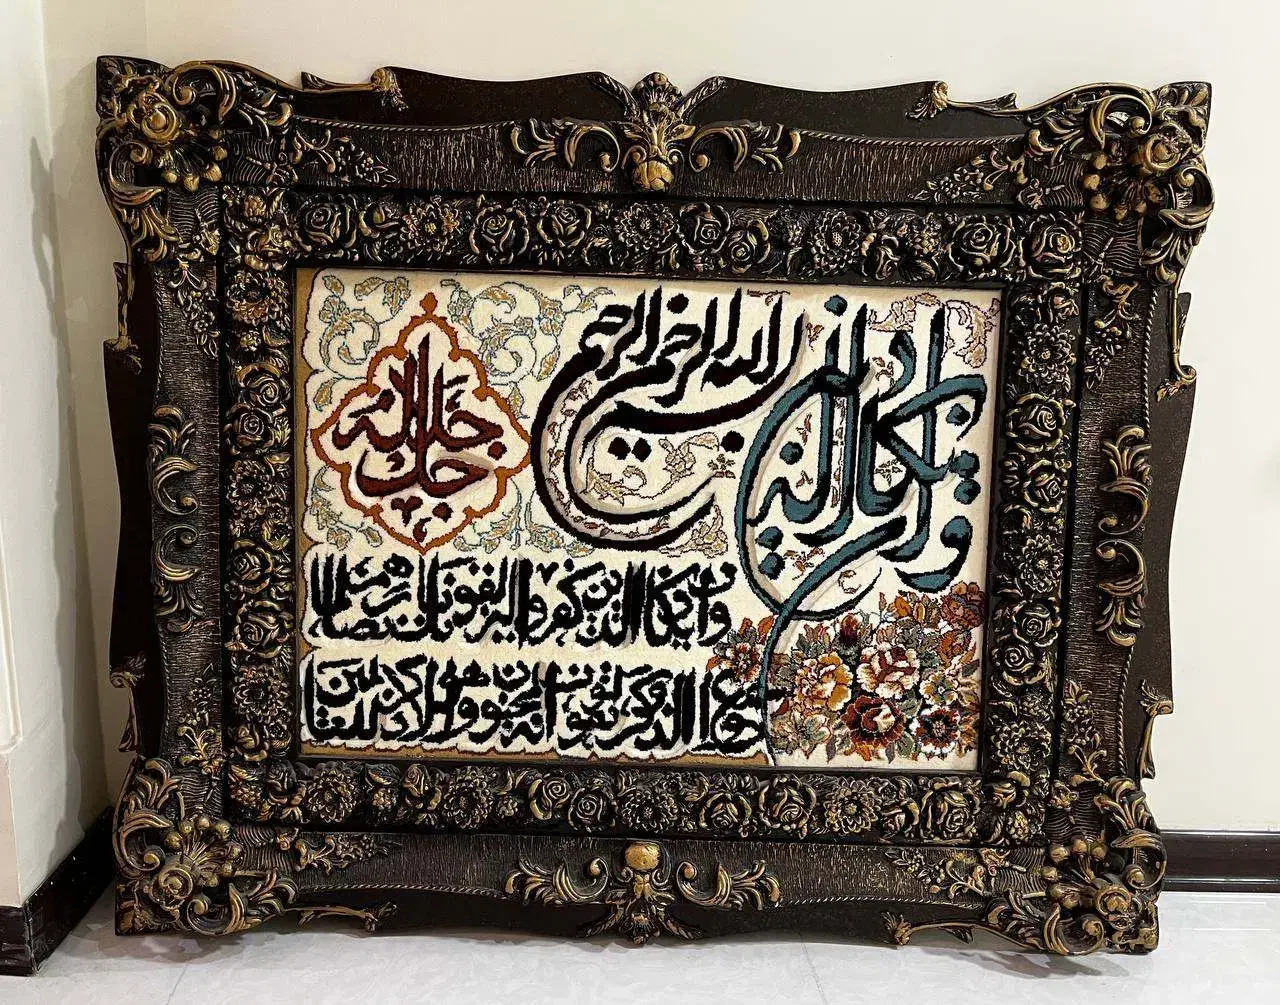 وان یکاد
بسم الله الرحمن الرحیم
جل جلاله
وان یکاد الذین کفروا لیزلقونک بابصارهم لما
سمعوا الذکر و یقولون انه لمجنون و ما هو الا ذکر للعالمین